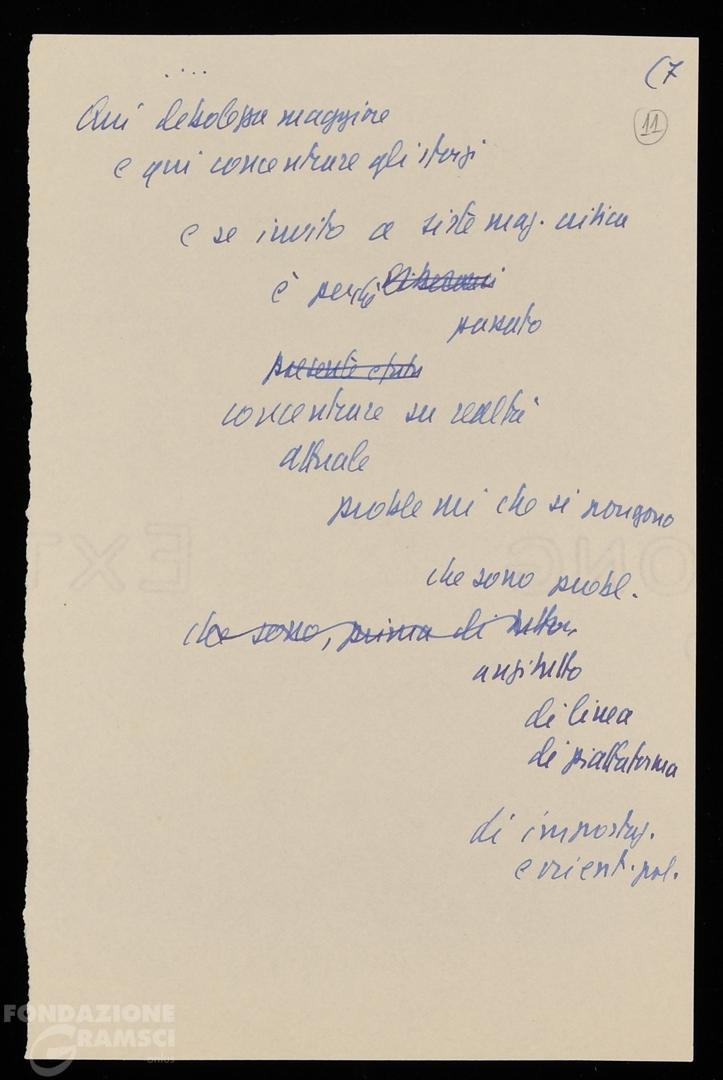 ....
(7
11
Qui debolezza maggiore
e qui concentrare gli sforzi
e se invito a siste mag. critica
è perché
passato
presente e futu
concentrare su realtà
attuale
problemi che si pongono
che sono probl.
che sono, prima di tutto,
anzitutto
di linea
di piattaforma
di impostaz.
e orient. pol.
FONDAZIONE
GRAMSCI
onlus